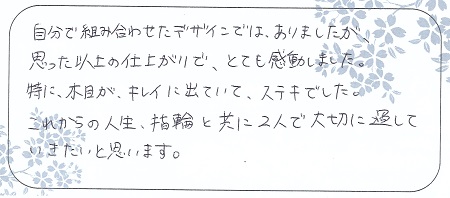 自分で組み合わせたデザインでは、ありましたが、
思った以上の仕上がりで、とても感動しました。
特に、木目が、キレイに出ていて、ステキでした。
これからの人生、指輪と共に2人で大切に過して
いきたいと思います。